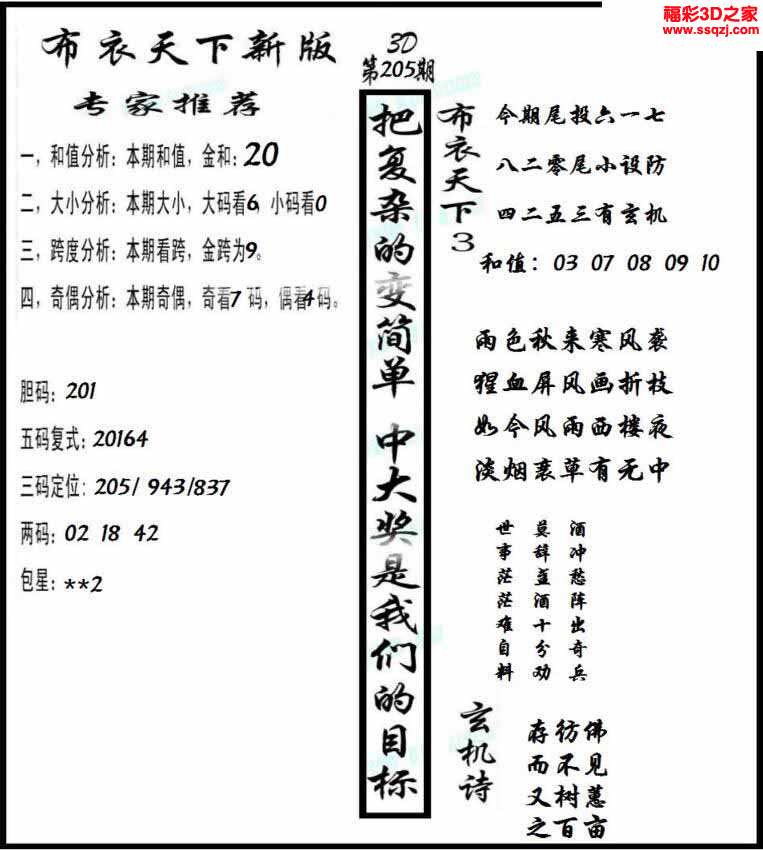 福彩3D之家
www.ssqzj.com
布衣天下新版
专家推荐
一，和值分析：本期和值，金和：20
二，大小分析：本期大小，大码看6，小码看0
三，跨度分析：本期看跨，金跨为9。
四，奇偶分析：本期奇偶，奇看7 码，偶看4码。
胆码：201
五码复式：20164
三码定位：205/ 943/837
两码：02 18 42
包星：**2
3D
第205期
把复杂的变简单 中大奖是我们的目标
布衣天下3
今期尾投六一七
八二零尾小设防
四二五三有玄机
和值： 03 07 08 09 10
雨色秋来寒风袭
猩血屏风画折枝
如今风雨西楼夜
淡烟衰草有无中
酒冲愁阵出奇兵
莫辞盏酒十分劝
世事茫茫难自料
玄机诗
存彷佛
而不见
又树蕙
之百亩